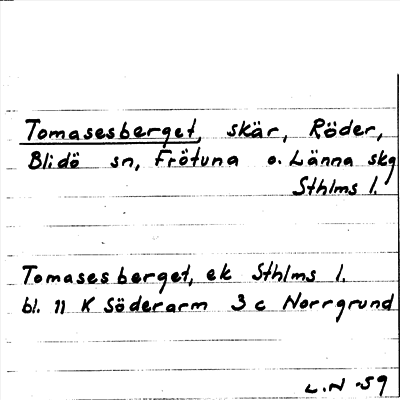 Tomasesberget, skär, Röder,
Blidö sn, Frötuna o. Länna skg
Sthlms l.
Tomasesberget, ek Sthlms l.
bl. 11 K Söderarm 3 c Norrgrund
L.N -59